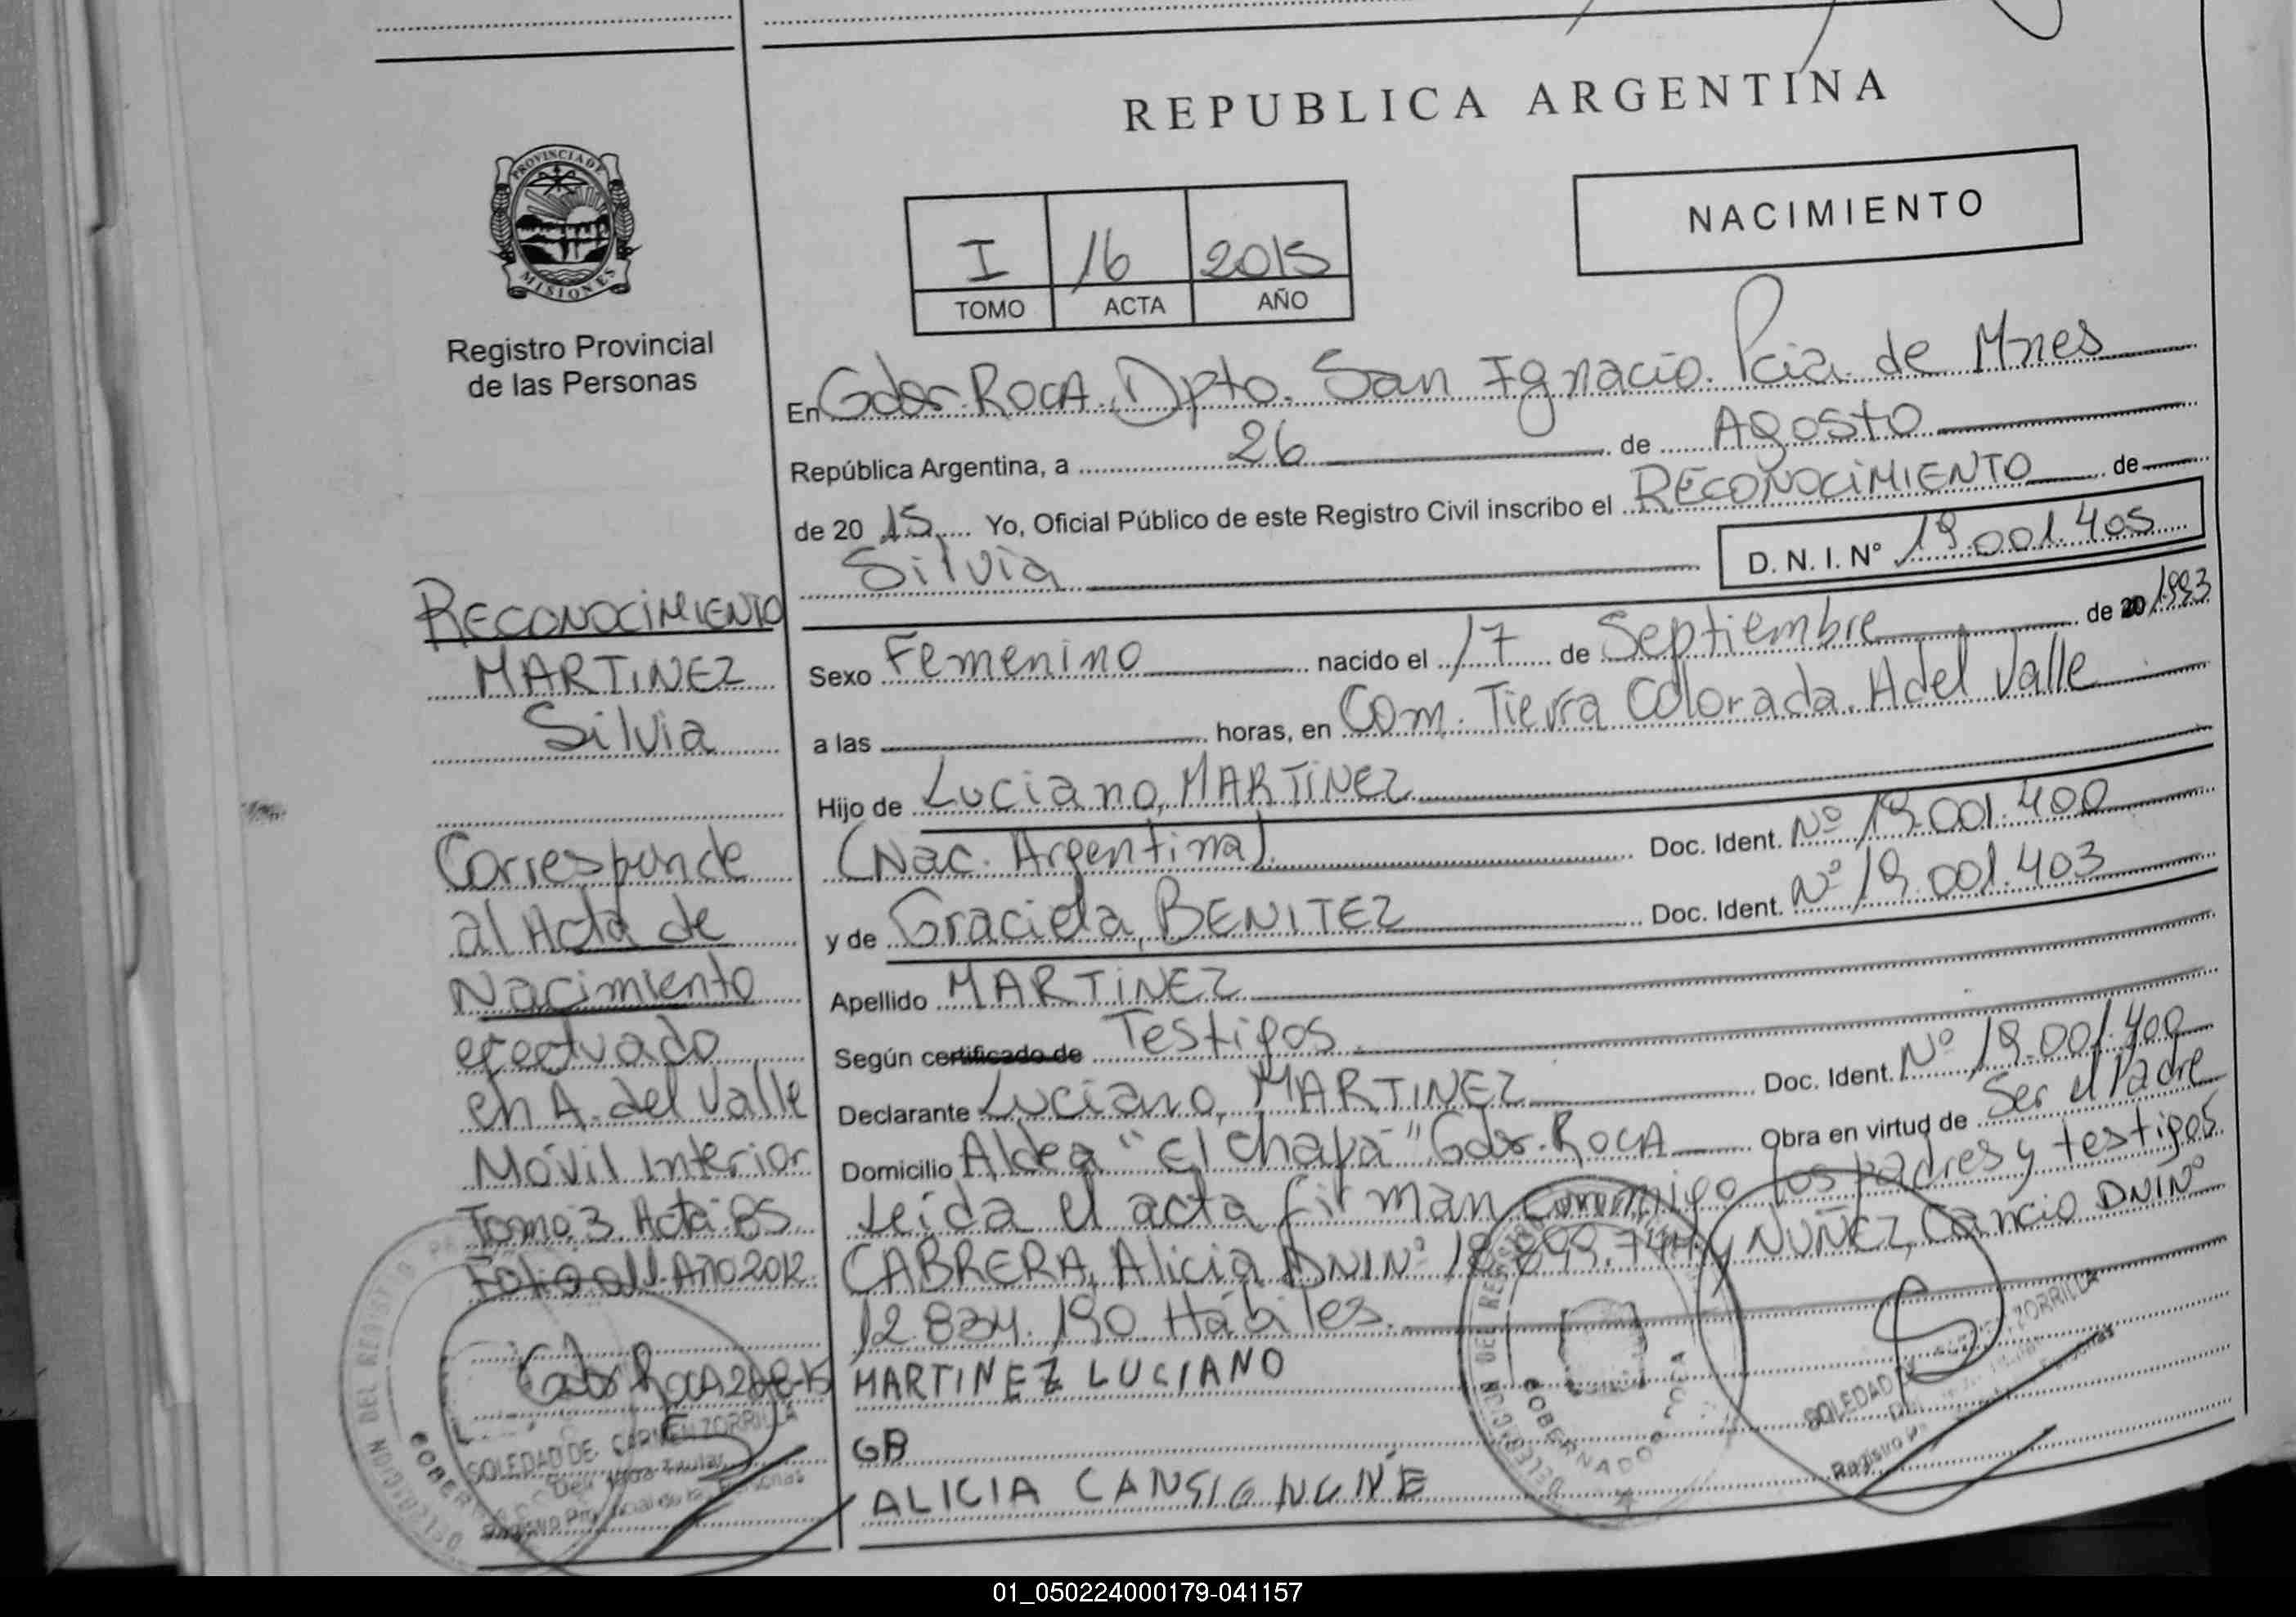 REPUBLICA ARGENTINA
PROVINCIA DE
MISIONES
Registro Provincial
de las Personas
NACIMIENTO
I 16 2015
TOMO ACTA AÑO
En Gdor. ROCA. Dpto. San Ignacio. Pcia. de Mnes
República Argentina, a 26 de Agosto
de 20 15 Yo, Oficial Público de este Registro Civil inscribo el RECONOCIMIENTO de
Silvia D.N.I. Nº 19.001.405
Sexo Femenino nacido el 17 de Septiembre de 20 1993
a las horas, en Com. Tierra Colorada. A del Valle
Hijo de Luciano, MARTINEZ
(Nac. Argentina) Doc. Ident. Nº 19.001.400
y de Graciela, BENITEZ Doc. Ident. Nº 19.001.403
Apellido MARTINEZ
Según certificado de Testigos
Declarante Luciano, MARTINEZ Doc. Ident. Nº 19.001.400
Domicilio Aldea "El Chapa" Gdor. ROCA Obra en virtud de Ser el Padre
Leída el acta firman conmigo los padres y testigos
CABRERA, Alicia DNI Nº y NUÑEZ, Cancio DNI Nº
12.834.190 Hábiles.
MARTINEZ LUCIANO
GB
ALICIA
RECONOCIMIENTO
MARTINEZ
Silvia
Corresponde
al Acta de
Nacimiento
efectuado
en A. del Valle
Móvil Interior
Tomo: 3. Acta: 85
Año 2012
Gdor Roca
SOLEDAD DE CARMEN ZORRILLA
SOLEDAD ZORRILLA
GOBERNADOR ROCA
01_050224000179-041157